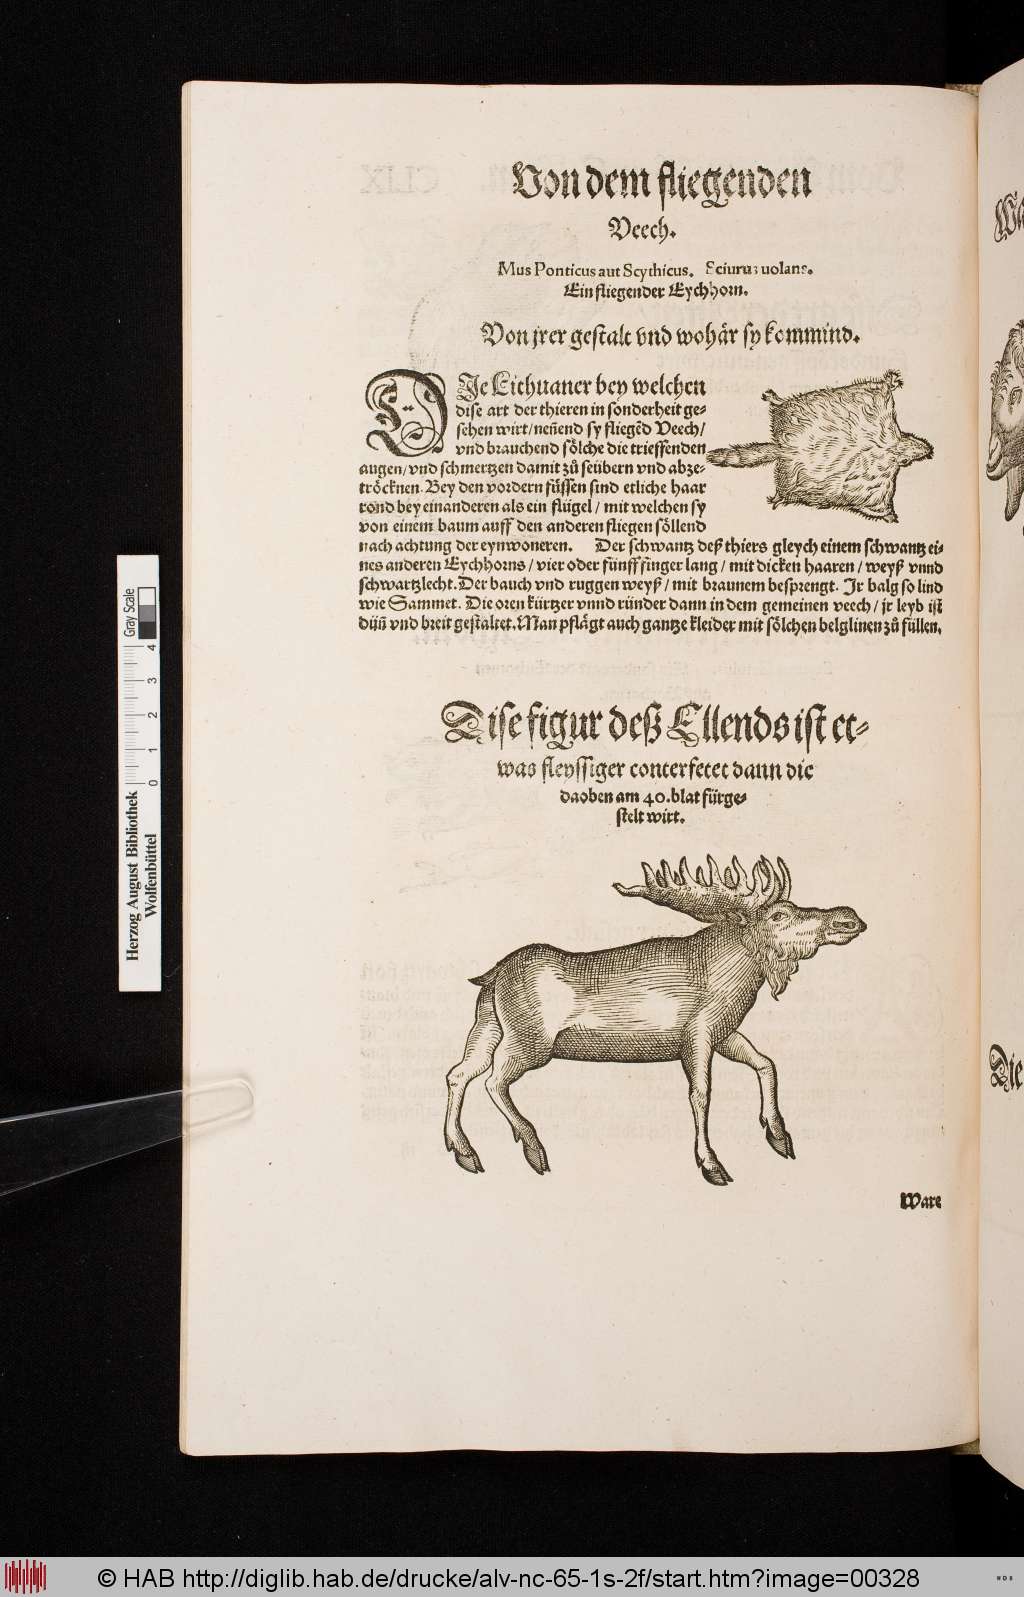 Von dem fliegenden
Veech.
Mus Ponticus aut Scythicus. Sciurus uolans.
Ein fliegender Eychhorn.
Von jrer gestalt vnd wohär sy kommind.
DJe Lithuaner bey welchen
dise art der thieren in sonderheit ge-
sehen wirt/ neñend sy fliegẽd Veech/
vnd brauchend sölche die trieffenden
augen/ vnd schmertzen damit zů seübern vnd abze-
tröcknen. Bey den vordern füssen sind etliche haar
rond bey einanderen als ein flügel/ mit welchen sy
von einem baum auff den anderen fliegen söllend
nach achtung der eynwoneren. Der schwantz deß thiers gleych einem schwantz ei-
nes anderen Eychhorns/ vier oder fünff finger lang/ mit dicken haaren/ weyß vnnd
schwartzlecht. Der bauch vnd ruggen weyß/ mit braunem besprengt. Jr balg so lind
wie Sammet. Die oren kürtzer vnnd ründer dann in dem gemeinen veech/ jr leyb ist
düñ vnd breit gestaltet. Man pflägt auch gantze kleider mit sölchen belglinen zů füllen.
Dise figur deß Ellends ist et-
was fleyssiger conterfetet dann die
daoben am 40. blat fürge-
stelt wirt.
Ware
Die
Herzog August Bibliothek
Wolfenbüttel
0 1 2 3 4
Gray Scale
© HAB http://diglib.hab.de/drucke/alv-nc-65-1s-2f/start.htm?image=00328